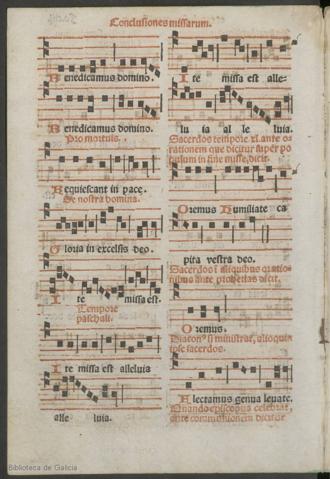 Conclusiones missarum.
Benedicamus domino.
Benedicamus domino.
Pro mortuis.
Requiescant in pace.
De nostra domina.
Gloria in excelsis deo.
Ite missa est.
Tempore
paschali.
Ite missa est alleluia
alle luia.
Ite missa est alle-
lu ia al le luia.
Sacerdos tempore ante o-
rationem que dicitur super po
pulum in fine misse, dicit.
Oremus Humiliate ca
pita vestra deo.
Sacerdos aliquibus oratio-
nibus ante prophetias dicit.
Oremus.
si ministrat, alioquin
ipse sacerdos.
Flectamus genua levate.
Quando episcopus celebrat,
ante communionem dicitur
Biblioteca de Galicia